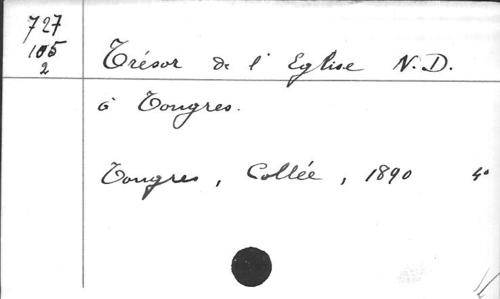 727
105
2
Trésor de l' Eglise N.D.
à Tongres.
Tongres, Collée, 1890 4°